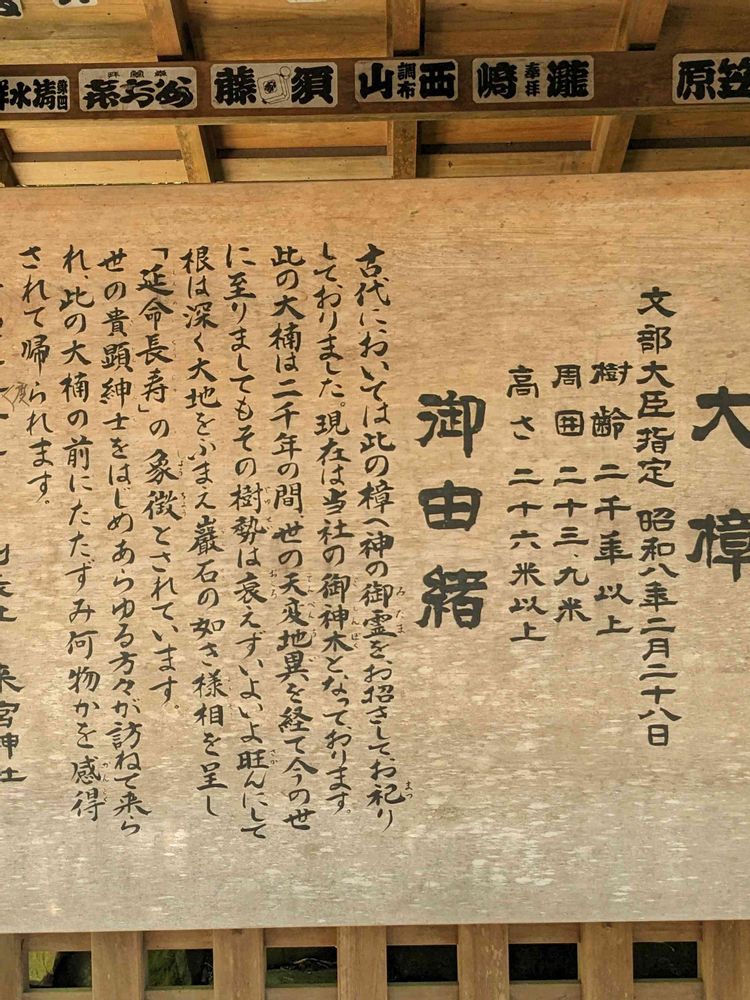 原笠
奉拝瀧﨑
調布西山
須藤
清水
大樟
文部大臣指定 昭和八年二月二十八日
樹齢 二千年以上
周囲 二十三、九米
高さ 二十六米以上
御由緒
古代においては此の樟へ神の御霊をお招きしてお祀り
しておりました。現在は当社の御神木となっております。
此の大楠は二千年の間、世の天変地異を経て今の世
に至りましてもその樹勢は衰えずいよいよ旺んにして
根は深く大地をふまえ巖石の如き様相を呈し
「延命長寿」の象徴とされています。
世の貴顕紳士をはじめあらゆる方々が訪ねて来ら
れ、此の大楠の前にたたずみ何物かを感得
されて帰られます。
来宮神社